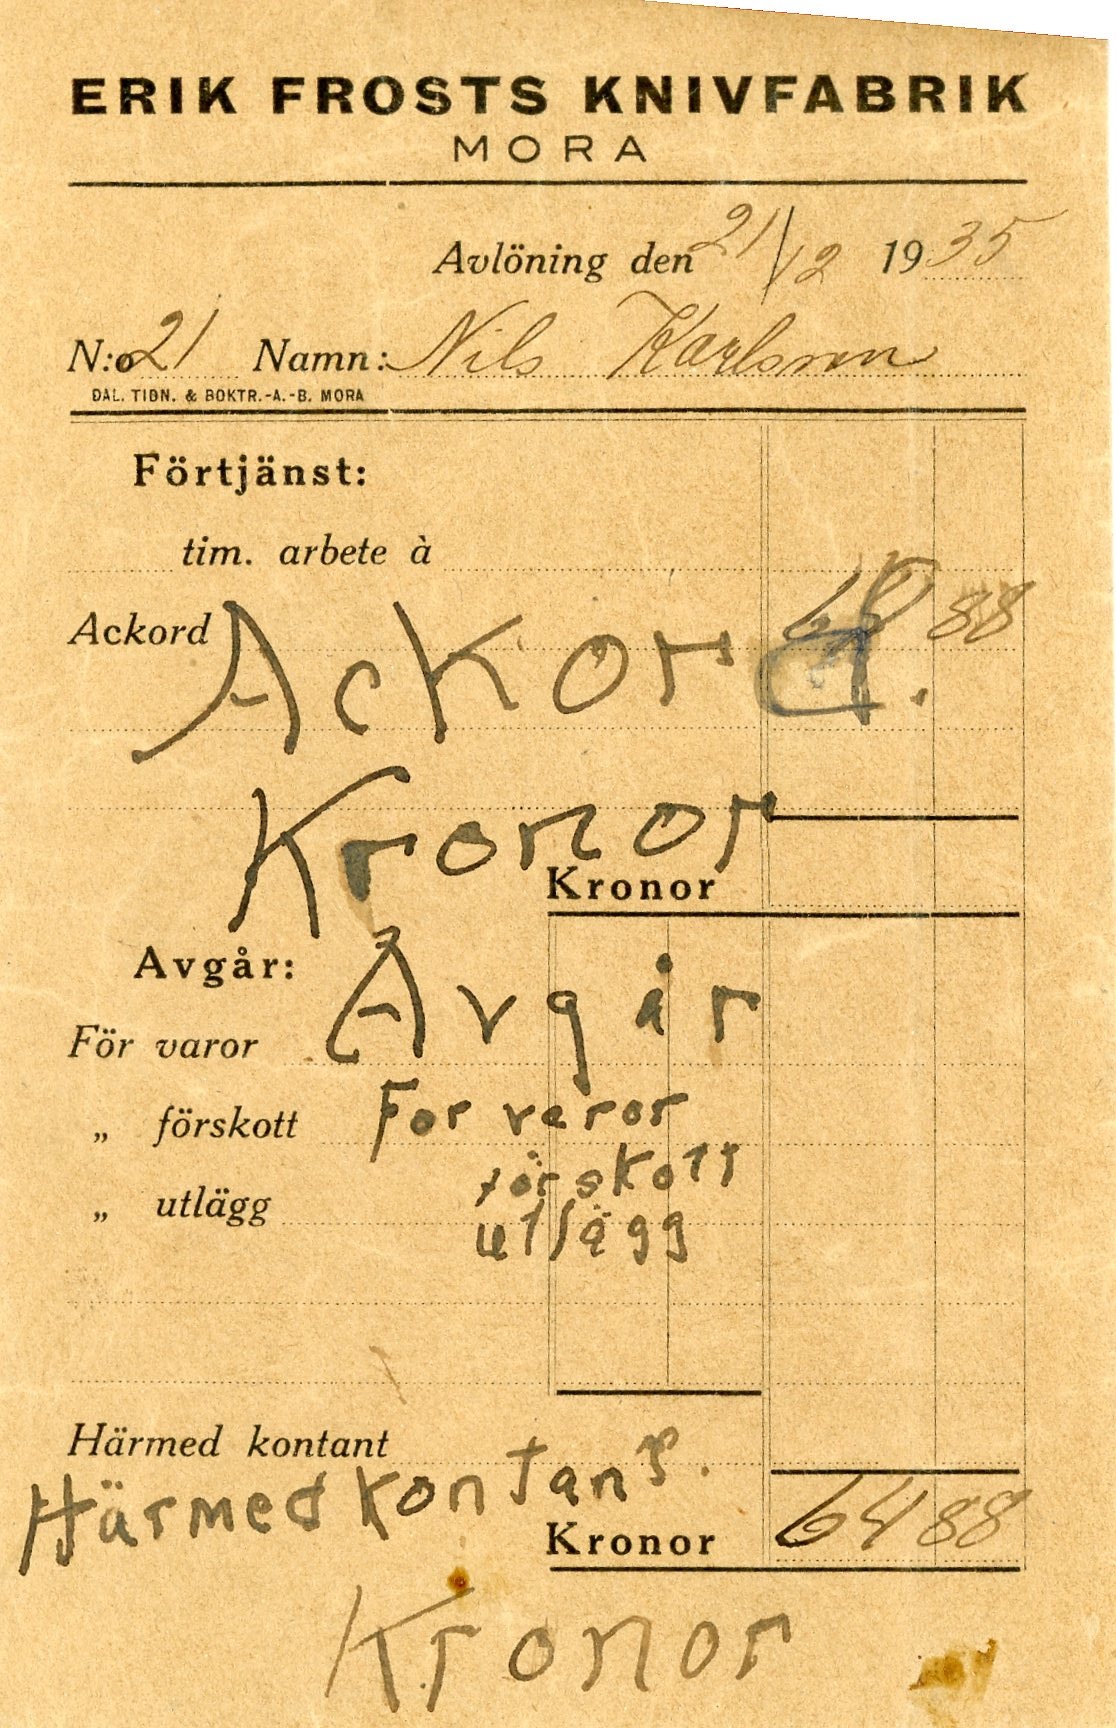 ERIK FROSTS KNIVFABRIK
MORA
Avlöning den 21/12 1935
N:o 21 Namn: Nils Karlsson
DAL. TIDN. & BOKTR.-A.-B. MORA
Förtjänst:
tim. arbete à
Ackord 88
Ackord.
Kronor
Kronor
Avgår:
Avgår
För varor
For varor
„ förskott
förskott
„ utlägg
utlägg
Härmed kontant
Härmed kontant.
Kronor 64 88
Kronor